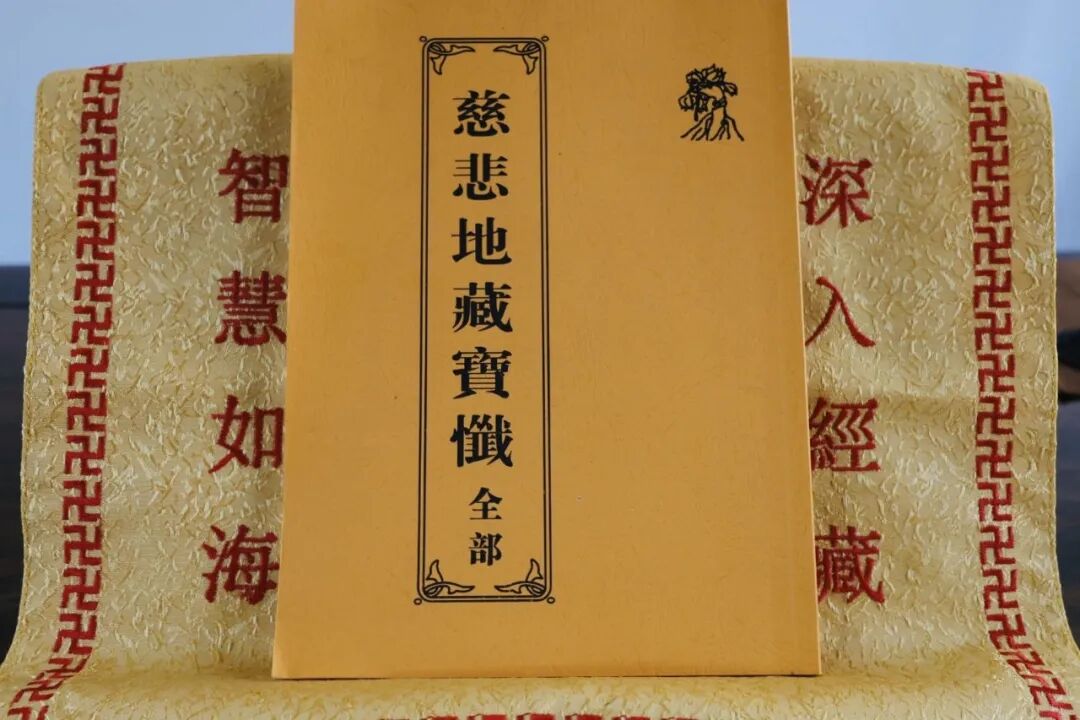 慈悲地藏寶懺 全部
深入經藏
智慧如海